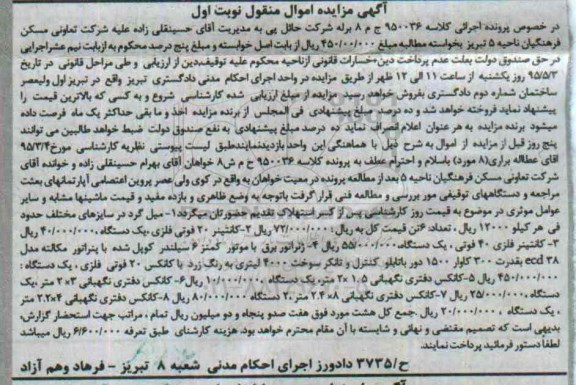 آگهی مزایده اموال منقول نوبت اول
در خصوص پرونده اجرائی کلاسه ۹۵۰۰۳۶ ج م ۸ برله شرکت حائل پی به مدیریت آقای حسینقلی زاده علیه شرکت تعاونی مسکن
فرهنگیان ناحیه ۵ تبریز بخواسته مطالبه مبلغ ۴۵۰/۰۰۰/۰۰۰ ریال از بابت اصل خواسته و مبلغ پنج درصد محکوم به ازبابت نیم عشراجرایی
در حق صندوق دولت بعلت عدم پرداخت دین+خسارات قانونی ازناحیه محکوم علیه توقیف،پس از ارزیابی و طی مراحل قانونی در تاریخ
۹۵/۵/۳ روز یکشنبه از ساعت ۱۱ الی ۱۲ ظهر از طریق مزایده در واحد اجرای احکام مدنی دادگستری تبریز واقع در تبریز اول ولیعصر
ساختمان شماره دوم دادگستری بفروش خواهد رسید مزایده از مبلغ ارزیابی شده کارشناسی شروع و به کسی که بالاترین قیمت را
پیشنهاد نماید فروخته خواهد شد و ده درصد مبلغ پیشنهادی فی المجلس از برنده مزایده اخذ و ما بقی حداکثر یک ماه فرصت داده
میشود برنده مزایده به هر عنوان اعلام انصراف نماید ده درصد مبلغ پیشنهادی به نفع صندوق دولت ضبط خواهد طالبین می توانند
پنج روز قبل از مزایده از اموال به شرح ذیل با هماهنگی این واحد بازدیدنمایند طبق لیست پیوستی نظریه کارشناسی مورخ۹۵/۳/۴
اقای عطااله براری(۸ مورد) باسلام و احترام عطف به پرونده کلاسه ۹۵۰۰۳۶ ج م ش۸ خواهان آقای بهرام حسینقلی زاده و خوانده آقای
شرکت تعاونی مسکن فرهنگیان ناحیه ۵ بعد از مطالعه پرونده در معیت خواهان به واقع در کوی ولی عصر پروین اعتصامی آپارتمانهای بعثت
مراجعه و دستگاههای توقیفی مور بررسی و مطالعه فنی قرار گرفت باتوجه به وضع ظاهری و بازده مفید و قیمت ماشینها مشابه و سایر
عوامل موثری در موضوع به قیمت روز کارشناسی پس از کسر استهلاک تقدیم حضورتان میگردد۱- میل گرد در سایزهای مختلف حدود
فی هر کیلو ۱۲۰۰۰ ریال . تعداد ۶تن قیمت کل به ریال : ۷۲/۰۰۰/۰۰۰ ریال ۲-کانتینر ۲۰ فوتی فلزی ،یک دستگاه ،۴۰/۰۰۰/۰۰۰ریال.
۳- کانتینر فلزی ۴۰ فوتی ، یک دستگاه،۵۵/۰۰۰/۰۰۰ریال ۴- ژنراتور برق با موتور کمنز ۶ سیلندر کوپل شده با پنراتور مکالته مدل
ecd ۳۸ بقدرت ۳۰۰ کاوار ۱۵۰۰ دور باتابلو کنترل و تانکر سوخت ۴۰۰۰ لیتری به رنگ زرد با کانکس ۲۰ فوتی فلزی ، یک دستگاه :
۴۵۰/۰۰۰/۰۰۰ ریال ۵-کانکس دفتری نگهبانی ۱.۵× ۲ متر،یک دستگاه ، ۱۰/۰۰۰/۰۰۰ ریال۶- کانکس دفتری نگهبانی ۳×۲ متر ،یک
دستگاه ،۲۵/۰۰۰/۰۰۰ ریال ۷-کانکس دفتری نگهبانی ۸×۲.۴ متر ،۲ دستگاه ،۸۰/۰۰۰/۰۰۰ ریال ۸-کانکس دفتری نگهبانی ۴×۲.۲ متر
، یک دستگاه ،۲۰/۰۰۰/۰۰۰ ریال .جمع کل هشت مورد فوق هفت صدو پنجاه و دو میلیون ریال تمام ، مراتب جهت استحضار گزارش،
بدیهی است که تصمیم مقتضی و نهائی و شایسته با آن مقام محترم خواهد بود، هزینه کارشناسی طبق تعرفه ۶/۶۰۰/۰۰۰ ریال میباشد
لطفاً دستور فرمائید پرداخت نمایند.
ح/۳۷۳۵ دادورز اجرای احکام مدنی شعبه ۸ تبریز - فرهاد وهم آزاد